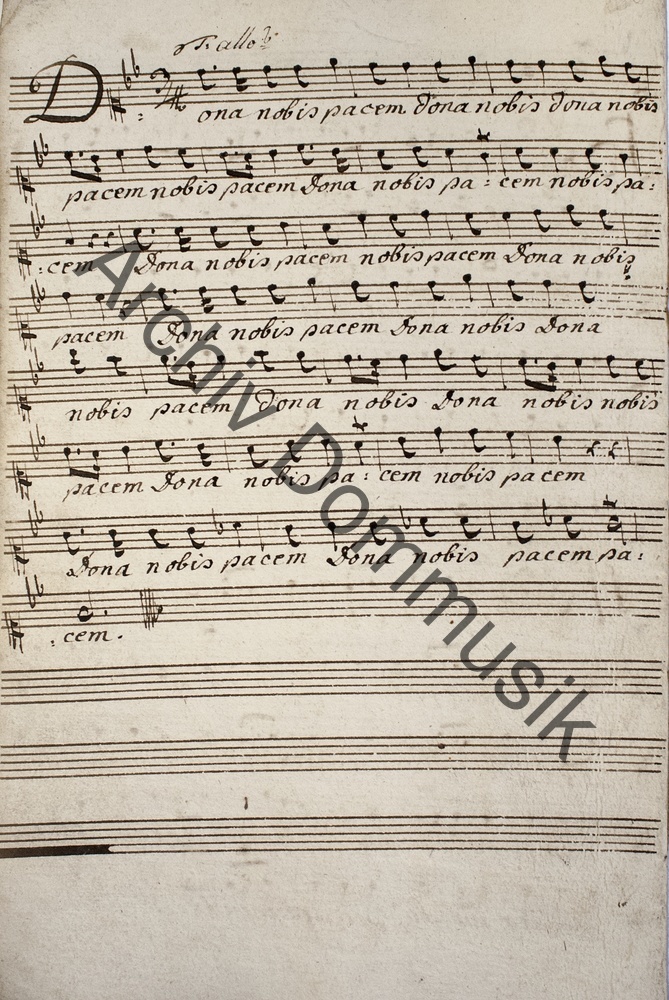 T: allo
Dona nobis pacem Dona nobis Dona nobis
pacem nobis pacem Dona nobis pa = cem nobis pa =
= cem Dona nobis pacem nobis pacem Dona nobis
pacem Dona nobis pacem Dona nobis Dona
nobis pacem Dona nobis Dona nobis nobis
pacem Dona nobis pa = cem nobis pacem
Dona nobis pacem Dona nobis pacem pa =
= cem.
Archiv Dommusik